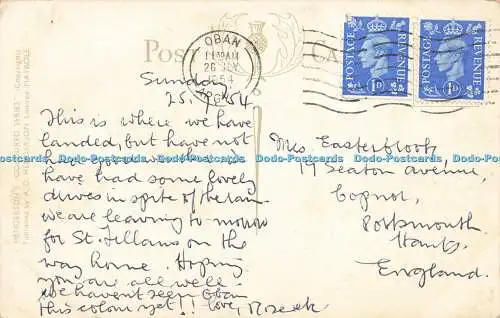 POST CARD
OBAN
11 30AM
26 JLY
1954
POSTAGE REVENUE
1D
POSTAGE REVENUE
1D
Sunday
25.7.54
This is where we have
landed, but have not
had good weather
have had some lovely
drives in spite of the rain
we are leaving to-morrow
for St. Fillans on the
way home. Hoping
you are all well.
We haven't seen Oban
this colour yet!! love,
Mrs. Easterbrook,
19 Seaton Avenue,
Copnor,
Portsmouth
Hants.
England.
Dodo-Postcards.com Dodo-Postcards.com Dodo-Postcards.com Dodo-Postcards.com Dodo-Postcards.com